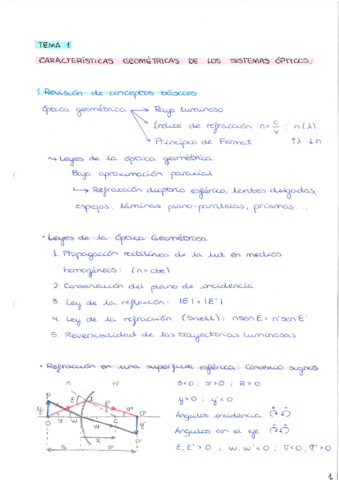 TEMA 1
CARACTERÍSTICAS GEOMÉTRICAS DE LOS SISTEMAS ÓPTICOS.
1. Revisión de conceptos básicos
Óptica geométrica → Rayo luminoso
→ Índice de refracción n = c/v ; n(λ)
→ Principio de Fermat ↑λ ↓n
→ Leyes de la óptica geométrica
Bajo aproximación paraxial
↳ Refracción dioptrio esférico, lentes delgadas,
espejos, láminas plano-paralelas, prismas...
• Leyes de la Óptica Geométrica
1. Propagación rectilínea de la luz en medios
homogéneos: (n = cte)
2. Conservación del plano de incidencia
3. Ley de la reflexión: |ε| = |ε'|
4. Ley de la refracción (Snell): n sen ε = n' sen ε'
5. Reversibilidad de las trayectorias luminosas
• Refracción en una superficie esférica: Convenio signos
n n' S<0 ; S'>0 ; R>0
y>0 ; y'<0
Ángulos incidencia
Ángulos con el eje
ε, ε'>0 ; w, w'<0 ; σ<0, σ'>0
1